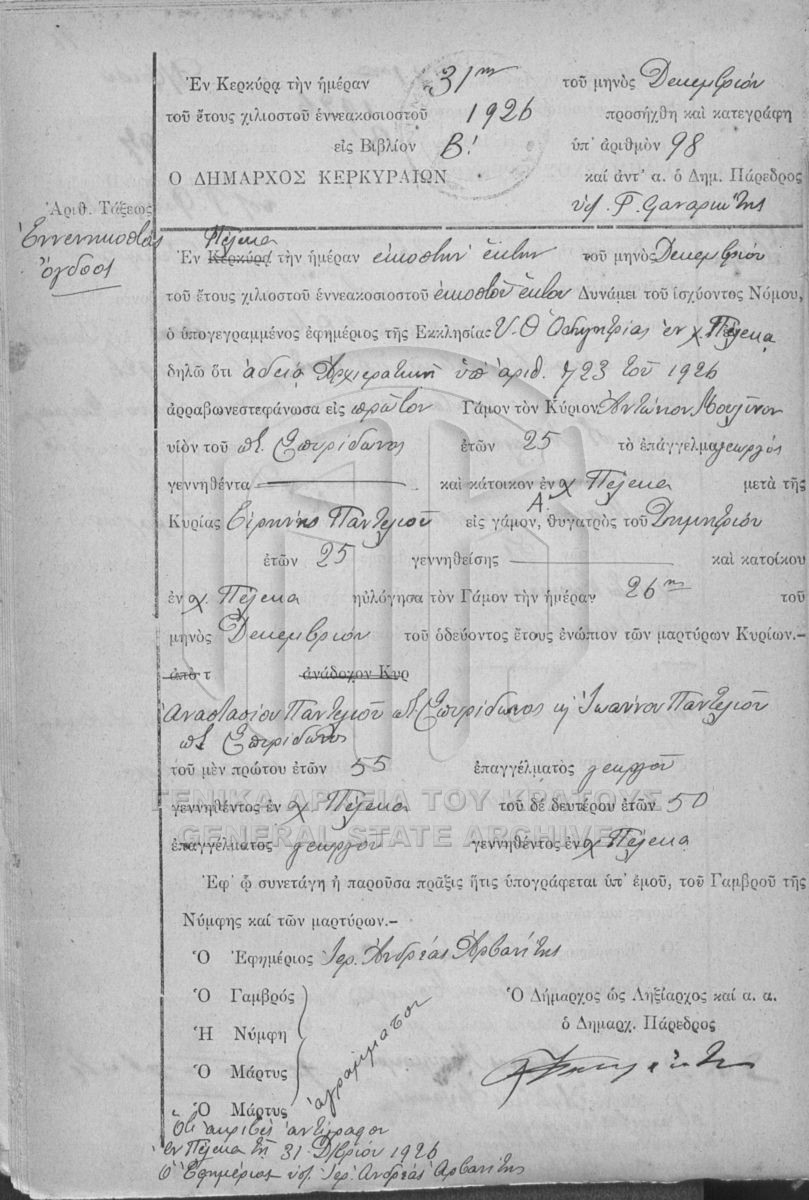 Ἐν Κερκύρᾳ τὴν ἡμέραν 31ην τοῦ μηνὸς Δεκεμβρίου
τοῦ ἔτους χιλιοστοῦ ἐννεακοσιοστοῦ 1926 προσήχθη καὶ κατεγράφη
εἰς Βιβλίον Β! ὑπ' ἀριθμὸν 98
Ο ΔΗΜΑΡΧΟΣ ΚΕΡΚΥΡΑΙΩΝ καί ἀντ' α. ὁ Δημ. Πάρεδρος
Ἀριθ. Τάξεως
Ἐννενηκοστὸς
ὄγδοος
Πέλεκα
Ἐν Κερκύρᾳ τὴν ἡμέραν εἰκοστὴν ἕκτην τοῦ μηνὸς Δεκεμβρίου
τοῦ ἔτους χιλιοστοῦ ἐννεακοσιοστοῦ εἰκοστοῦ ἕκτου Δυνάμει τοῦ ἰσχύοντος Νόμου,
ὁ ὑπογεγραμμένος ἐφημέριος τῆς Εκκλησίας Υ.Θ Ὁδηγητρίας ἐν χ. Πέλεκα
δηλῶ ὅτι ἀδείᾳ Ἀρχιερατικῇ ὑπ' ἀριθ. 723 τοῦ 1926
ἀρραβωνεστεφάνωσα εἰς πρῶτον Γάμον τὸν Κύριον Ἀντώνιον Μουζῖνον
υἱὸν τοῦ ποτ. Σπυρίδωνος ἐτῶν 25 τὸ ἐπάγγελμα γεωργός
γεννηθέντα καὶ κάτοικον ἐν χ Πέλεκα μετὰ τῆς
Κυρίας Εἰρήνης Παντελιοῦ εἰς Α. γάμον, θυγατρὸς τοῦ Δημητρίου
ἐτῶν 25 γεννηθείσης καὶ κατοίκου
ἐν χ. Πέλεκα ηὐλόγησα τὸν Γάμον τὴν ἡμέραν 26ην τοῦ
μηνὸς Δεκεμβρίου τοῦ ὁδεύοντος ἔτους ἐνώπιον τῶν μαρτύρων Κυρίων.–
ἀπὸ τ ἀνάδοχον Κυρ
Ἀναστασίου Παντελιοῦ ποτ. Σπυρίδωνος κ Ἰωάννου Παντελιοῦ
ποτ. Σπυρίδωνος
τοῦ μὲν πρώτου ἐτῶν 55 ἐπαγγέλματος γεωργοῦ
γεννηθέντος ἐν χ Πέλεκα τοῦ δέ δευτέρου ἐτῶν 50
ΓΕΝΙΚΑ ΑΡΧΕΙΑ ΤΟΥ ΚΡΑΤΟΥΣ
GENERAL STATE ARCHIVES
ἐπαγγέλματος γεωργοῦ γεννηθέντος ἐν χ Πέλεκα
Ἐφ' ᾧ συνετάγη ἡ παροῦσα πρᾶξις ἥτις ὑπογράφεται ὑπ' ἐμοῦ, τοῦ Γαμβροῦ τῆς
Νύμφης καί τῶν μαρτύρων.–
Ὁ Ἐφημέριος Ἱερ. Ἀνδρέας Ἀρβανίτης
Ὁ Γαμβρός
Ἡ Νύμφη
Ὁ Μάρτυς
Ὁ Μάρτυς
ἀγράμματοι
Ὁ Δήμαρχος ὡς Ληξίαρχος καί α. α.
ὁ Δημαρχ. Πάρεδρος
Ὅτι ἀκριβὲς ἀντίγραφον
ἐν Πέλεκα τῇ 31 Δ/βρίου 1926
ὁ Ἐφημέριος ὑπ. Ἱερ. Ἀνδρέας Ἀρβανίτης